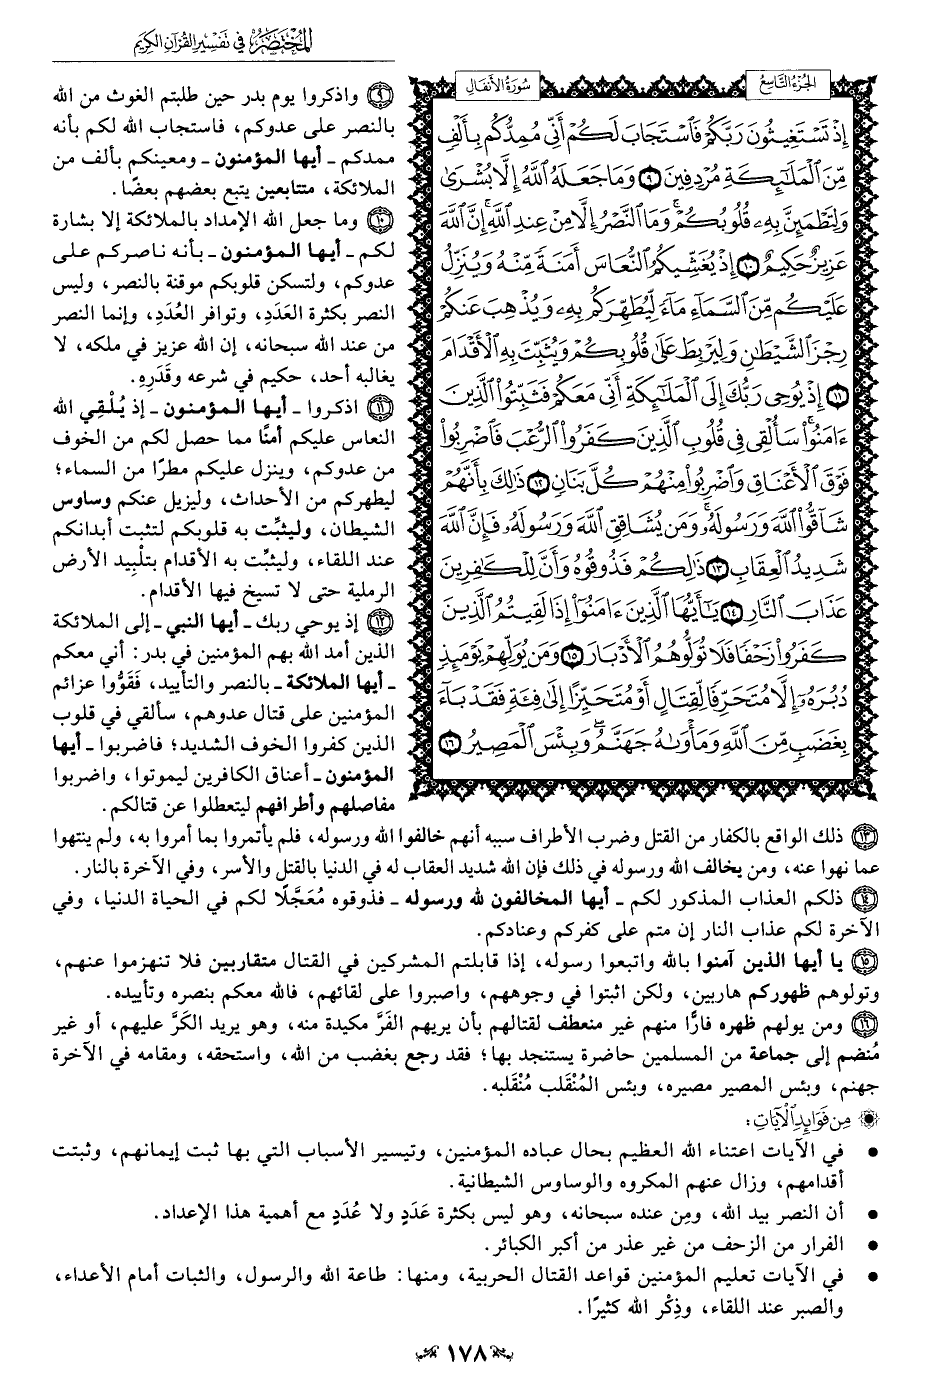 المختصر في تفسير القرآن الكريم
الجزء التاسع
سورة الأنفال
إِذۡ تَسۡتَغِيثُونَ رَبَّكُمۡ فَٱسۡتَجَابَ لَكُمۡ أَنِّي مُمِدُّكُم بِأَلۡفٖ
مِّنَ ٱلۡمَلَٰٓئِكَةِ مُرۡدِفِينَ ٩ وَمَا جَعَلَهُ ٱللَّهُ إِلَّا بُشۡرَىٰ
وَلِتَطۡمَئِنَّ بِهِۦ قُلُوبُكُمۡۚ وَمَا ٱلنَّصۡرُ إِلَّا مِنۡ عِندِ ٱللَّهِۚ إِنَّ ٱللَّهَ
عَزِيزٌ حَكِيمٌ ١٠ إِذۡ يُغَشِّيكُمُ ٱلنُّعَاسَ أَمَنَةٗ مِّنۡهُ وَيُنَزِّلُ
عَلَيۡكُم مِّنَ ٱلسَّمَآءِ مَآءٗ لِّيُطَهِّرَكُم بِهِۦ وَيُذۡهِبَ عَنكُمۡ
رِجۡزَ ٱلشَّيۡطَٰنِ وَلِيَرۡبِطَ عَلَىٰ قُلُوبِكُمۡ وَيُثَبِّتَ بِهِ ٱلۡأَقۡدَامَ
١١ إِذۡ يُوحِي رَبُّكَ إِلَى ٱلۡمَلَٰٓئِكَةِ أَنِّي مَعَكُمۡ فَثَبِّتُواْ ٱلَّذِينَ
ءَامَنُواْۚ سَأُلۡقِي فِي قُلُوبِ ٱلَّذِينَ كَفَرُواْ ٱلرُّعۡبَ فَٱضۡرِبُواْ
فَوۡقَ ٱلۡأَعۡنَاقِ وَٱضۡرِبُواْ مِنۡهُمۡ كُلَّ بَنَانٖ ١٢ ذَٰلِكَ بِأَنَّهُمۡ
شَآقُّواْ ٱللَّهَ وَرَسُولَهُۥۚ وَمَن يُشَاقِقِ ٱللَّهَ وَرَسُولَهُۥ فَإِنَّ ٱللَّهَ
شَدِيدُ ٱلۡعِقَابِ ١٣ ذَٰلِكُمۡ فَذُوقُوهُ وَأَنَّ لِلۡكَٰفِرِينَ
عَذَابَ ٱلنَّارِ ١٤ يَٰٓأَيُّهَا ٱلَّذِينَ ءَامَنُوٓاْ إِذَا لَقِيتُمُ ٱلَّذِينَ
كَفَرُواْ زَحۡفٗا فَلَا تُوَلُّوهُمُ ٱلۡأَدۡبَارَ ١٥ وَمَن يُوَلِّهِمۡ يَوۡمَئِذٖ
دُبُرَهُۥٓ إِلَّا مُتَحَرِّفٗا لِّقِتَالٍ أَوۡ مُتَحَيِّزًا إِلَىٰ فِئَةٖ فَقَدۡ بَآءَ
بِغَضَبٖ مِّنَ ٱللَّهِ وَمَأۡوَىٰهُ جَهَنَّمُۖ وَبِئۡسَ ٱلۡمَصِيرُ ١٦
٩ واذكروا يوم بدر حين طلبتم الغوث من الله
بالنصر على عدوكم، فاستجاب الله لكم بأنه
ممدكم ـ أيها المؤمنون ـ ومعينكم بألف من
الملائكة، متتابعين يتبع بعضهم بعضًا.
١٠ وما جعل الله الإمداد بالملائكة إلا بشارة
لكم ـ أيها المؤمنون ـ بأنه ناصركم على
عدوكم، ولتسكن قلوبكم موقنة بالنصر، وليس
النصر بكثرة العَدَدِ، وتوافر العُدَدِ، وإنما النصر
من عند الله سبحانه، إن الله عزيز في ملكه، لا
يغالبه أحد، حكيم في شرعه وقَدَرِهِ.
١١ اذكروا ـ أيها المؤمنون ـ إذ يُلْقِي الله
النعاس عليكم أمنًا مما حصل لكم من الخوف
من عدوكم، وينزل عليكم مطرًا من السماء؛
ليطهركم من الأحداث، وليزيل عنكم وساوس
الشيطان، وليثبِّت به قلوبكم لتثبت أبدانكم
عند اللقاء، وليثبِّت به الأقدام بتلْبِيد الأرض
الرملية حتى لا تسيخ فيها الأقدام.
١٢ إذ يوحي ربك ـ أيها النبي ـ إلى الملائكة
الذين أمد الله بهم المؤمنين في بدر: أني معكم
ـ أيها الملائكة ـ بالنصر والتأييد، فَقَوُّوا عزائم
المؤمنين على قتال عدوهم، سألقي في قلوب
الذين كفروا الخوف الشديد؛ فاضربوا ـ أيها
المؤمنون ـ أعناق الكافرين ليموتوا، واضربوا
مفاصلهم وأطرافهم ليتعطلوا عن قتالكم.
١٣ ذلك الواقع بالكفار من القتل وضرب الأطراف سببه أنهم خالفوا الله ورسوله، فلم يأتمروا بما أمروا به، ولم ينتهوا
عما نهوا عنه، ومن يخالف الله ورسوله في ذلك فإن الله شديد العقاب له في الدنيا بالقتل والأسر، وفي الآخرة بالنار.
١٤ ذلكم العذاب المذكور لكم ـ أيها المخالفون لله ورسوله ـ فذوقوه مُعَجَّلًا لكم في الحياة الدنيا، وفي
الآخرة لكم عذاب النار إن متم على كفركم وعنادكم.
١٥ يا أيها الذين آمنوا بالله واتبعوا رسوله، إذا قابلتم المشركين في القتال متقاربين فلا تنهزموا عنهم،
وتولوهم ظهوركم هاربين، ولكن اثبتوا في وجوههم، واصبروا على لقائهم، فالله معكم بنصره وتأييده.
١٦ ومن يولهم ظهره فارًّا منهم غير منعطف لقتالهم بأن يريهم الفَرَّ مكيدة منه، وهو يريد الكَرَّ عليهم، أو غير
مُنضم إلى جماعة من المسلمين حاضرة يستنجد بها؛ فقد رجع بغضب من الله، واستحقه، ومقامه في الآخرة
جهنم، وبئس المصير مصيره، وبئس المُنْقَلب مُنْقَلبه.
من فوائد الآيات:
• في الآيات اعتناء الله العظيم بحال عباده المؤمنين، وتيسير الأسباب التي بها ثبت إيمانهم، وثبتت
أقدامهم، وزال عنهم المكروه والوساوس الشيطانية.
• أن النصر بيد الله، ومِن عنده سبحانه، وهو ليس بكثرة عَدَدٍ ولا عُدَدٍ مع أهمية هذا الإعداد.
• الفرار من الزحف من غير عذر من أكبر الكبائر.
• في الآيات تعليم المؤمنين قواعد القتال الحربية، ومنها: طاعة الله والرسول، والثبات أمام الأعداء،
والصبر عند اللقاء، وذِكْر الله كثيرًا.
١٧٨